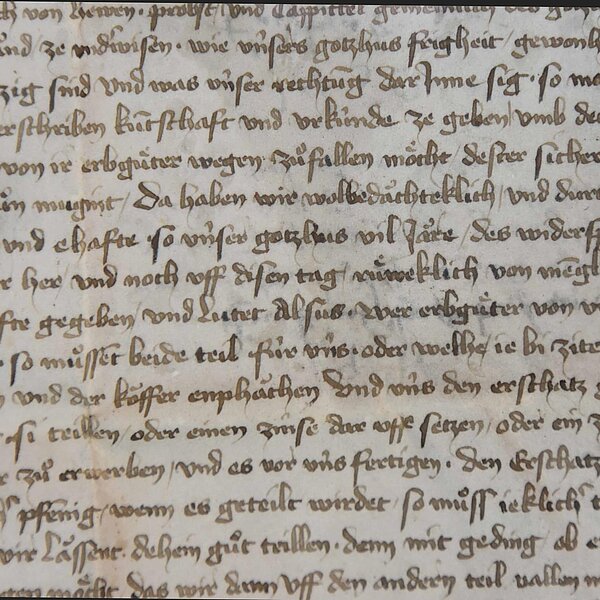 von probst und Cappittel gemeinlich
und ze underwisen · wie unsers gotzhus frigheit / gewonh
zig sind und was unser rechtung dar Inne sig · so m
erschriben kuntschaft und urkunde ze geben / umb de
von ir erbgůter wegen · zůfallen mo᷍cht / dester sicher
mugint / Da haben wir wolbedächteklich / und dur
und ehafte · so unser gotzhus vil Jare / des
her / und noch uff disen tag / růweklich von mengl
fte gegeben / und lutet Alsus · Wer erbgůter von u
so můssent beide teil · fúr úns · oder welhe ie bi zite
und der köffer enphachen Und úns den erschatz g
si teillen / oder einen zinse dar uff setzen / oder ein z
zů erwerben / und es vor úns fertigen · den Erschatz
pfenig / wenn es geteilt wirdet / so můss ieklicher t
wir Lässent · dehein gůt teillen · denn mit geding ob e
möcht das wir dann uff den andern teil vallen